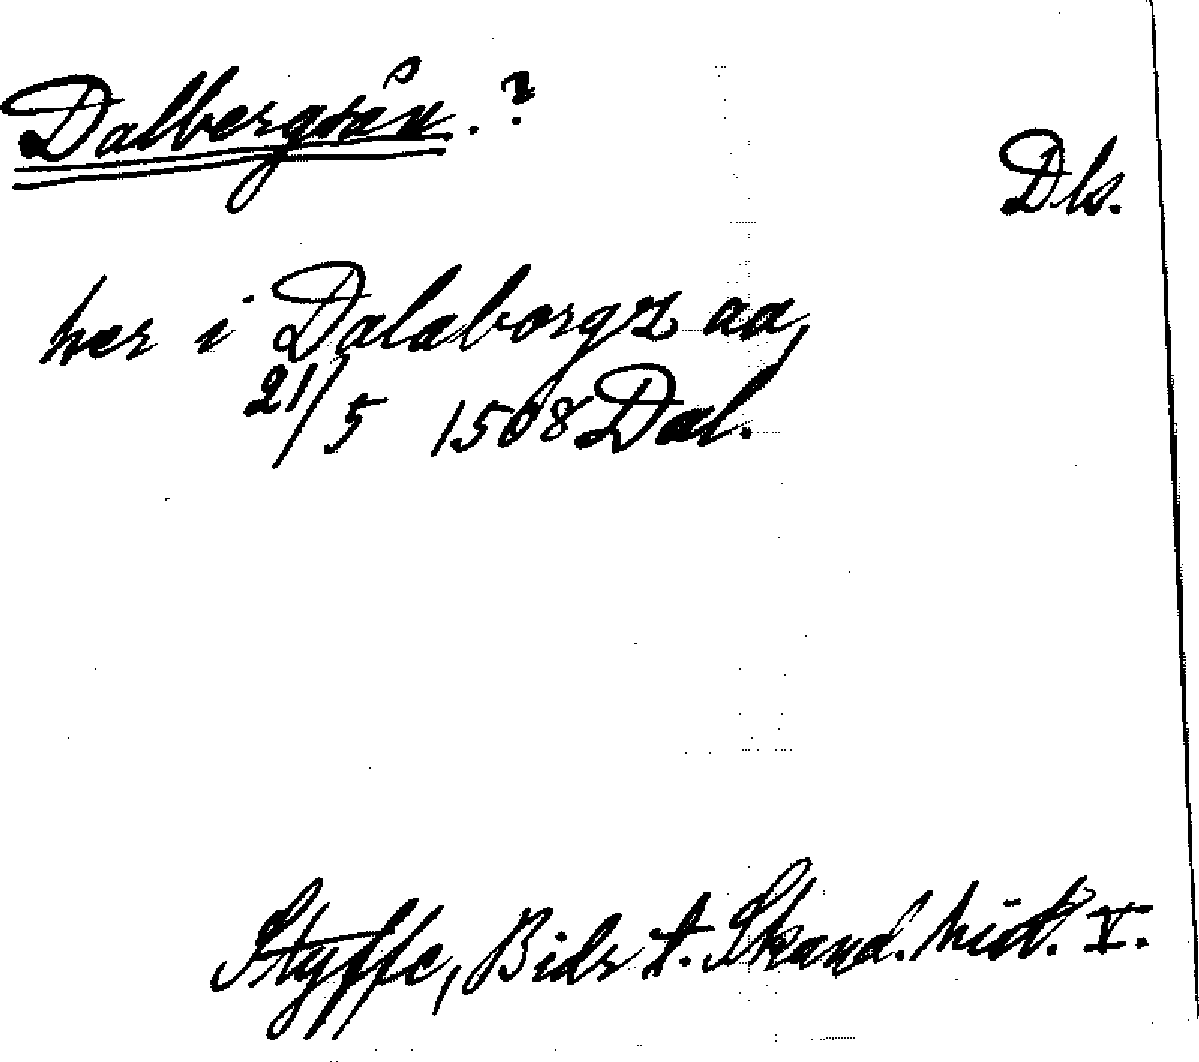 Dalbergsån.?
Dls.
her i Dalaborgz aa,
21/5 1508 Dal.
Styffe, Bidr t. Skand. hist. V.